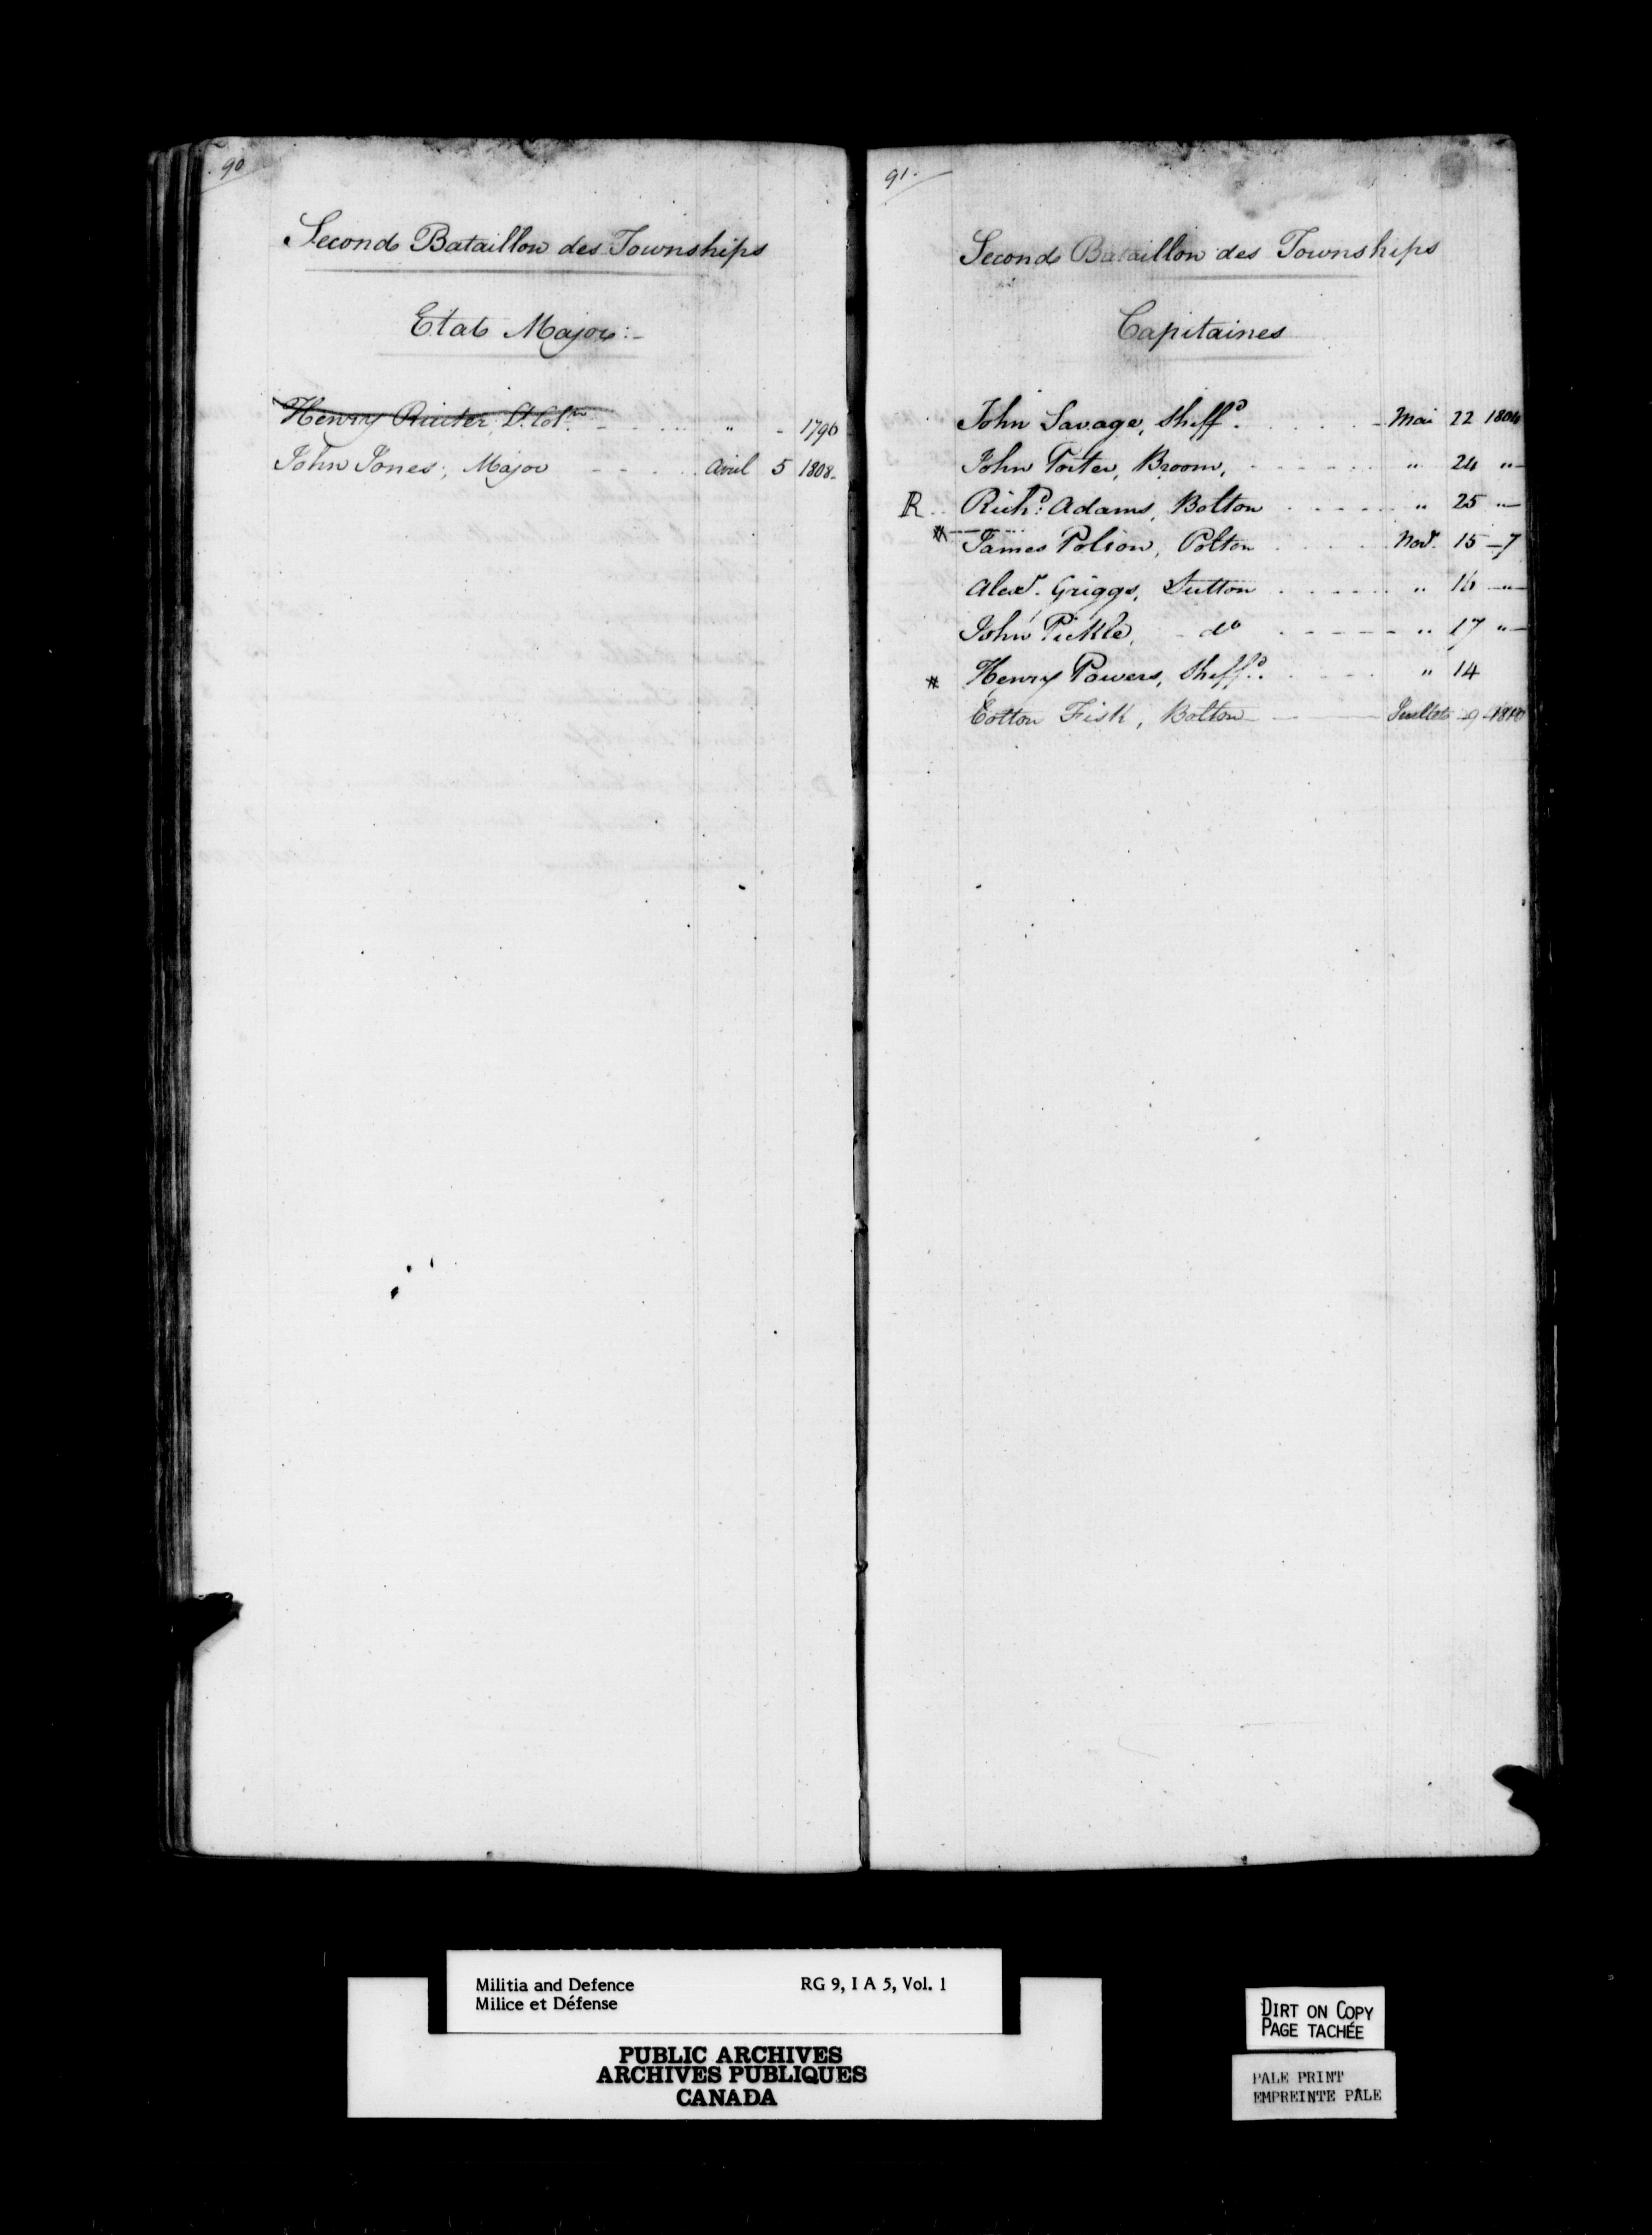 90
Second Bataillon des Townships
Etat Major:-
Henry Ruiter, Lt. Col. - - - - " - 1796
John Jones, Major - - - - Avril 5 1808.
91.
Second Bataillon des Townships
Capitaines
John Savage, Sheffd. - - - - Mai 22 1804
John Porter, Broom, - - - - " 24 "
R. Richd. Adams, Bolton - - - - " 25 "
# James Polson, Potton - - - - Novr. 15 - 7
Alexr. Griggs, Sutton - - - - " 16 "
John Pickle, - do - - - - " 17 "
# Henry Powers, Sheffd. - - - - " 14
Cotton Fisk, Bolton - - - - Juillet 9 1810
Militia and Defence RG 9, I A 5, Vol. 1
Milice et Défense
PUBLIC ARCHIVES
ARCHIVES PUBLIQUES
CANADA
DIRT ON COPY
PAGE TACHÉE
PALE PRINT
EMPREINTE PALE